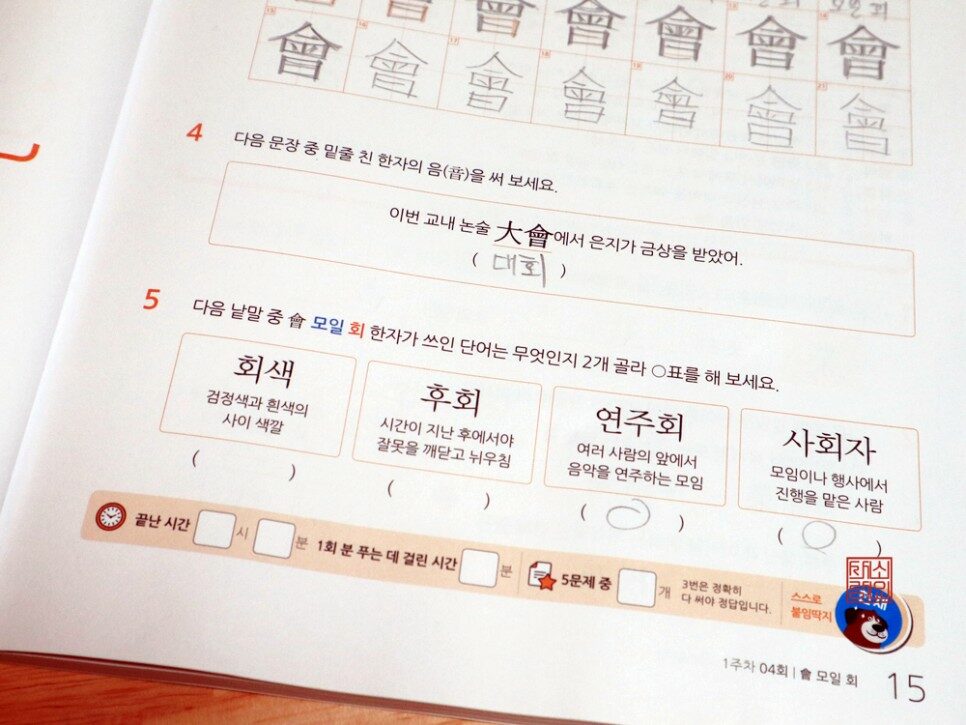 모일 회
13 14
會 會 會 會 會 會
15 16 17 18 19 20 21
會 會 會 會 會 會 會
4 다음 문장 중 밑줄 친 한자의 음(音)을 써 보세요.
이번 교내 논술 大會에서 은지가 금상을 받았어.
( 대회 )
5 다음 낱말 중 會 모일 회 한자가 쓰인 단어는 무엇인지 2개 골라 ○표를 해 보세요.
회색
검정색과 흰색의
사이 색깔
( )
후회
시간이 지난 후에서야
잘못을 깨닫고 뉘우침
( )
연주회
여러 사람의 앞에서
음악을 연주하는 모임
( ○ )
사회자
모임이나 행사에서
진행을 맡은 사람
( ○ )
끝난 시간 시 분 1회 분 푸는 데 걸린 시간 분 5문제 중 개
3번은 정확히
다 써야 정답입니다.
스스로
붙임딱지
1주차 04회 | 會 모일 회 15